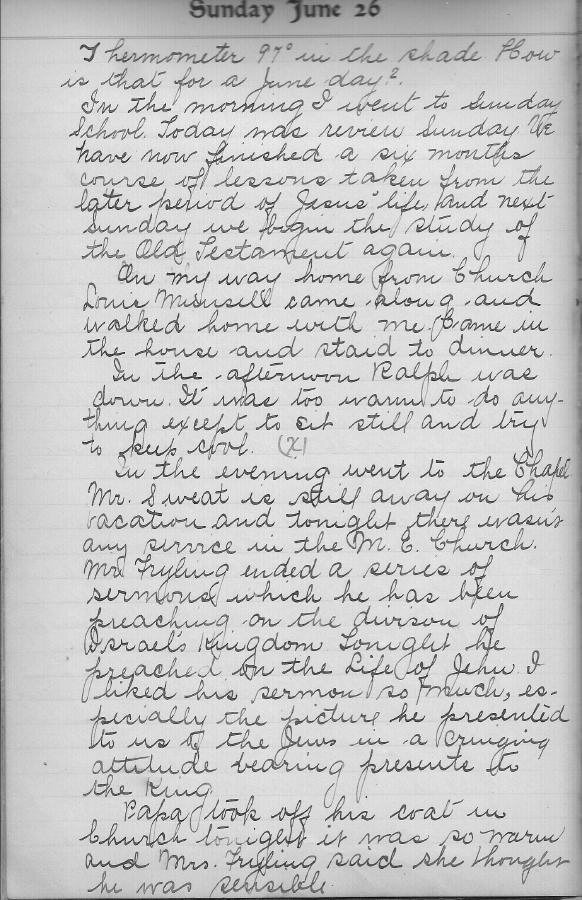 Sunday June 26
Thermometer 97° in the shade. How
is that for a June day?.
In the morning I went to Sunday
School. Today was review Sunday. We
have now finished a six months
course of lessons taken from the
later period of Jesus' life, and next
Sunday we begin the study of
the Old Testament again.
On my way home from Church
Louie Munsell came along and
walked home with me. Came in
the house and staid to dinner.
In the afternoon Ralph was
down. It was too warm to do any-
thing except to sit still and try
to keep cool. (X)
In the evening went to the Chapel
Mr. Sweat is still away on his
vacation and tonight there wasn't
any service in the M. E. Church.
Mr. Fryling ended a series of
sermons which he has been
preaching on the divison of
Israel's Kingdom Tonight he
preached on the Life of Jehu. I
liked his sermon so much, es-
pecially the picture he presented
to us of the Jews in a cringing
attitude bearing presents to
the King.
Papa took off his coat in
Church tonight it was so warm
and Mrs. Fryling said she thought
he was sensible.